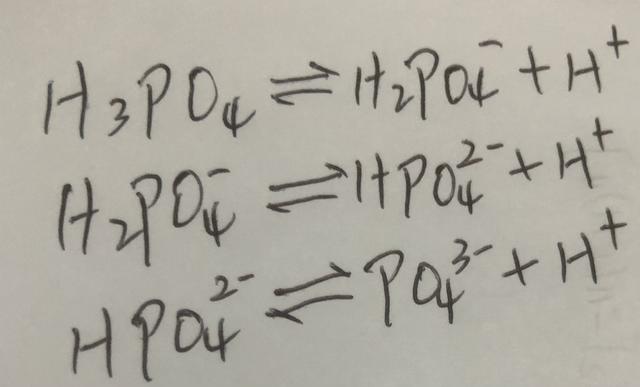 H₃PO₄ ⇌ H₂PO₄⁻ + H⁺
H₂PO₄⁻ ⇌ HPO₄²⁻ + H⁺
HPO₄²⁻ ⇌ PO₄³⁻ + H⁺